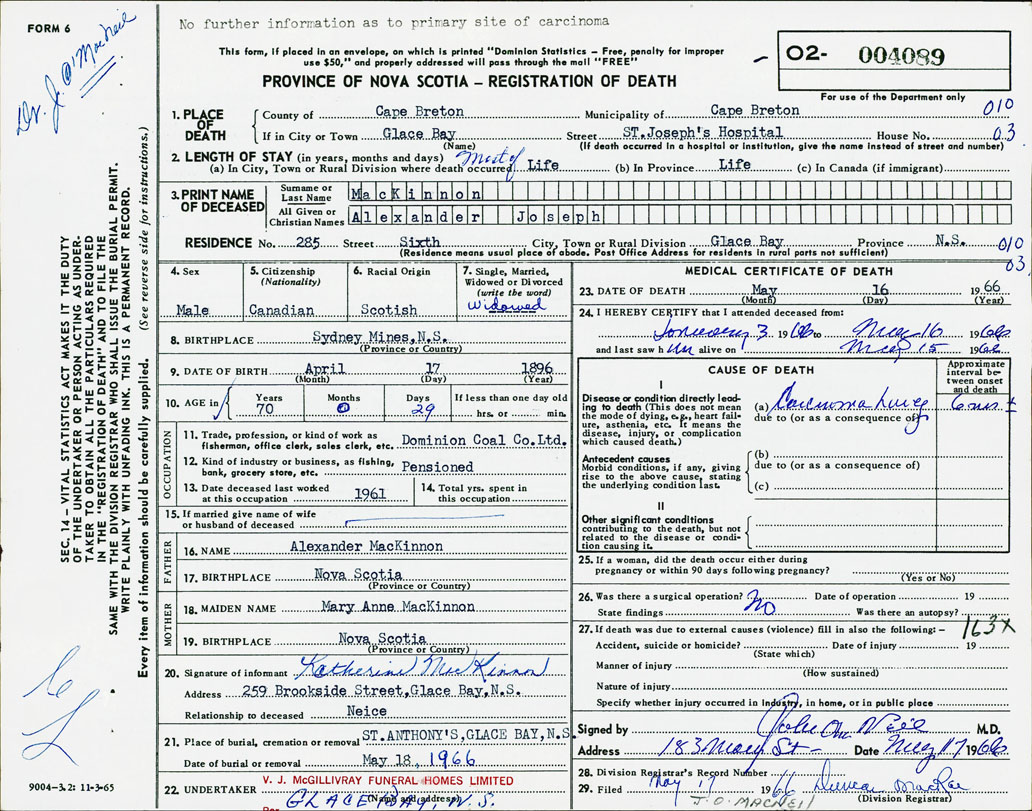 No further information as to primary site of carcinoma
FORM 6
Dr. J. O'Macneil
This form, if placed in an envelope, on which is printed "Dominion Statistics – Free, penalty for improper
use $50," and properly addressed will pass through the mail "FREE"
PROVINCE OF NOVA SCOTIA – REGISTRATION OF DEATH
02- 004089
For use of the Department only
1. PLACE OF DEATH
County of Cape Breton Municipality of Cape Breton 010
If in City or Town Glace Bay Street ST.Joseph's Hospital House No. 03
(Name) (If death occurred in a hospital or institution, give the name instead of street and number)
2. LENGTH OF STAY (in years, months and days)
(a) In City, Town or Rural Division where death occurred Most of Life (b) In Province Life (c) In Canada (if immigrant)
3. PRINT NAME OF DECEASED
Surname or Last Name MacKinnon
All Given or Christian Names Alexander Joseph
RESIDENCE No. 285 Street Sixth City, Town or Rural Division Glace Bay Province N.S. 010
(Residence means usual place of abode. Post Office Address for residents in rural parts not sufficient) 03
4. Sex Male
5. Citizenship (Nationality) Canadian
6. Racial Origin Scotish
7. Single, Married, Widowed or Divorced (write the word) Widowed
8. BIRTHPLACE Sydney Mines,N.S.
(Province or Country)
9. DATE OF BIRTH April 17 1896
(Month) (Day) (Year)
10. AGE in Years 70 Months 0 Days 29 If less than one day old hrs. or min.
OCCUPATION
11. Trade, profession, or kind of work as fisherman, office clerk, sales clerk, etc. Dominion Coal Co.Ltd.
12. Kind of industry or business, as fishing, bank, grocery store, etc. Pensioned
13. Date deceased last worked at this occupation 1961
14. Total yrs. spent in this occupation
15. If married give name of wife or husband of deceased
FATHER
16. NAME Alexander MacKinnon
17. BIRTHPLACE Nova Scotia
(Province or Country)
MOTHER
18. MAIDEN NAME Mary Anne MacKinnon
19. BIRTHPLACE Nova Scotia
(Province or Country)
20. Signature of informant Katherine MacKinnon
Address 259 Brookside Street,Glace Bay,N.S.
Relationship to deceased Neice
21. Place of burial, cremation or removal ST.ANTHONY'S,GLACE BAY,N.S.
Date of burial or removal May 18, 1966
22. UNDERTAKER V. J. McGILLIVRAY FUNERAL HOMES LIMITED
(Name and address)
GLACE BAY, N.S.
Per
MEDICAL CERTIFICATE OF DEATH
23. DATE OF DEATH May 16 1966
(Month) (Day) (Year)
24. I HEREBY CERTIFY that I attended deceased from:
January 3 1966 to May 16 1966
and last saw him alive on May 15 1966
CAUSE OF DEATH
Approximate interval between onset and death
I
Disease or condition directly leading to death (This does not mean the mode of dying, e.g., heart failure, asthenia, etc. It means the disease, injury, or complication which caused death.)
(a) Carcinoma Lung 6 ms ±
due to (or as a consequence of)
Antecedent causes
Morbid conditions, if any, giving rise to the above cause, stating the underlying condition last.
(b)
due to (or as a consequence of)
(c)
II
Other significant conditions
contributing to the death, but not related to the disease or condition causing it.
25. If a woman, did the death occur either during pregnancy or within 90 days following pregnancy?
(Yes or No)
26. Was there a surgical operation? No Date of operation 19
State findings Was there an autopsy?
27. If death was due to external causes (violence) fill in also the following: – 163X
Accident, suicide or homicide? Date of injury 19
(State which)
Manner of injury
(How sustained)
Nature of injury
Specify whether injury occurred in Industry, in home, or in public place
Signed by M.D.
Address 183 Main St- Date May 17 1966
28. Division Registrar's Record Number
29. Filed May 17 1966 Duncan MacRae
(Division Registrar)
J.O. MACNEIL
SEC. 14 – VITAL STATISTICS ACT MAKES IT THE DUTY
OF THE UNDERTAKER OR PERSON ACTING AS UNDER-
TAKER TO OBTAIN ALL THE PARTICULARS REQUIRED
IN THE "REGISTRATION OF DEATH" AND TO FILE THE
SAME WITH THE DIVISION REGISTRAR WHO SHALL ISSUE THE BURIAL PERMIT.
WRITE PLAINLY WITH UNFADING INK. THIS IS A PERMANENT RECORD.
Every item of information should be carefully supplied. (See reverse side for instructions.)
9004-3.2: 11-3-65